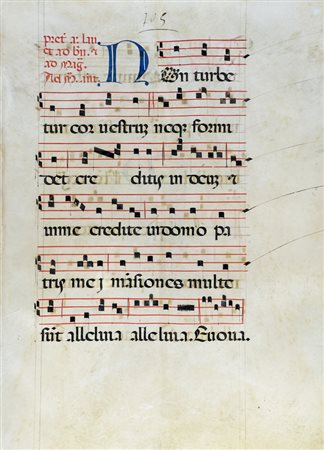 105
ad Mag.
Non turbe
tur cor uestrum neqz formi
det cre ditis in deum et
in me credite in domo pa
tris mei mansiones multe
sunt alleluia alleluia. Euoua.